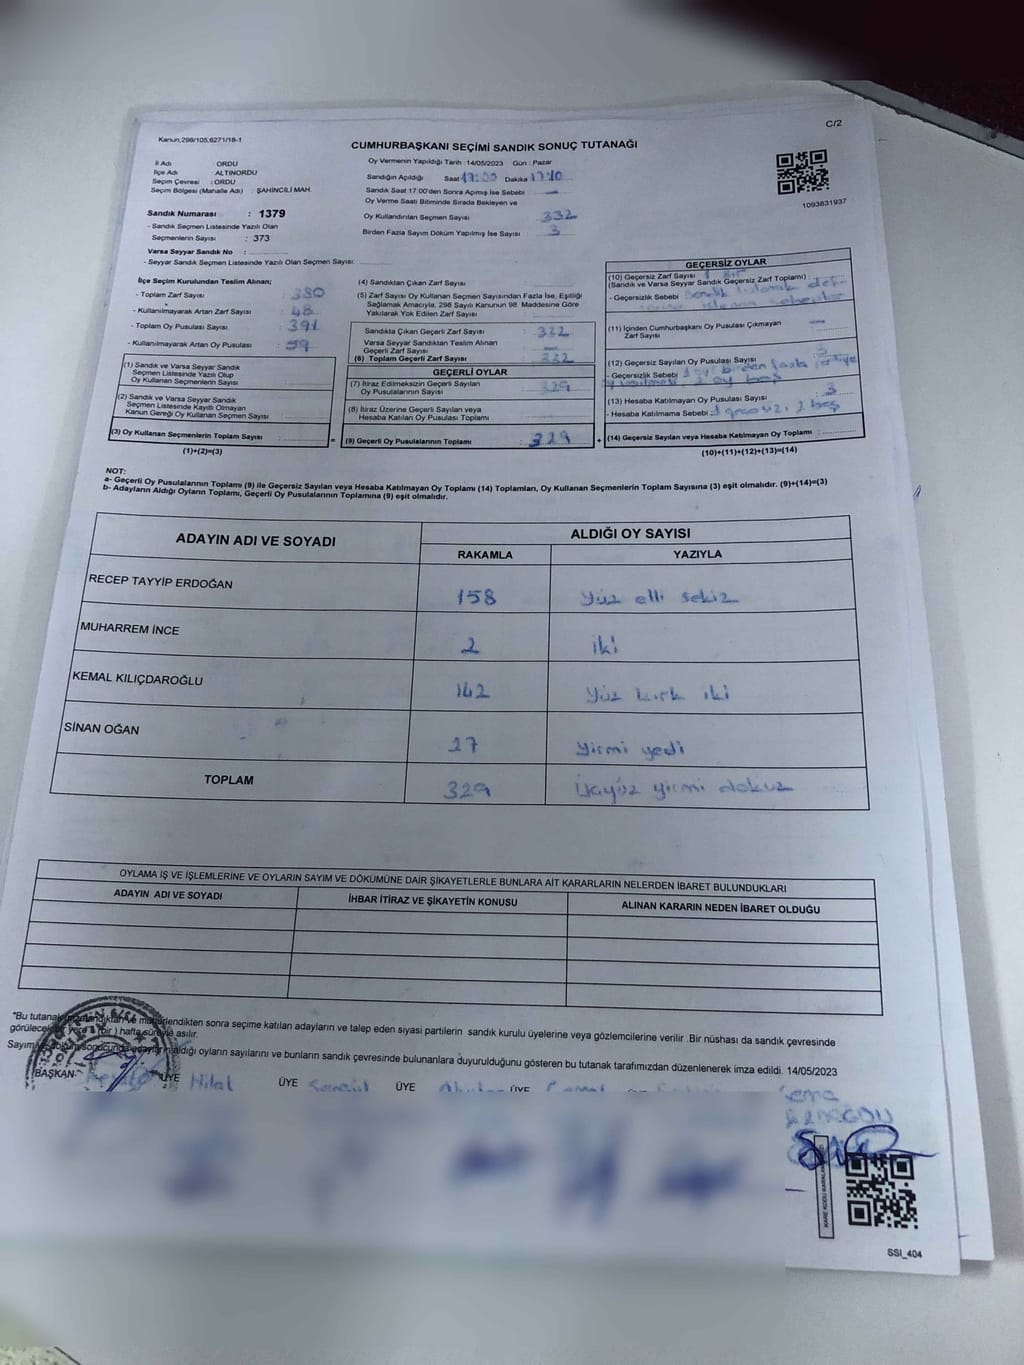 C/2
Kanun;298/105;6271/18-1
CUMHURBAŞKANI SEÇİMİ SANDIK SONUÇ TUTANAĞI
İl Adı : ORDU
İlçe Adı : ALTINORDU
Seçim Çevresi : ORDU
Seçim Bölgesi (Mahalle Adı) : ŞAHİNCİLİ MAH.
Sandık Numarası : 1379
- Sandık Seçmen Listesinde Yazılı Olan
Seçmenlerin Sayısı : 373
Varsa Seyyar Sandık No :
- Seyyar Sandık Seçmen Listesinde Yazılı Olan Seçmen Sayısı:
Oy Vermenin Yapıldığı Tarih :14/05/2023 Gün : Pazar
Sandığın Açıldığı Saat 17:00 Dakika 17:10
Sandık Saat 17:00'den Sonra Açmış İse Sebebi
Oy Verme Saati Bitiminde Sırada Bekleyen ve
Oy Kullandırılan Seçmen Sayısı : 332
Birden Fazla Sayım Döküm Yapılmış İse Sayısı : 3
1093831937
İlçe Seçim Kurulundan Teslim Alınan;
- Toplam Zarf Sayısı : 380
- Kullanılmayarak Artan Zarf Sayısı : 48
- Toplam Oy Pusulası Sayısı : 391
- Kullanılmayarak Artan Oy Pusulası : 59
(1) Sandık ve Varsa Seyyar Sandık
Seçmen Listesinde Yazılı Olup
Oy Kullanan Seçmenlerin Sayısı
(2) Sandık ve Varsa Seyyar Sandık
Seçmen Listesinde Kayıtlı Olmayan
Kanun Gereği Oy Kullanan Seçmen Sayısı
(3) Oy Kullanan Seçmenlerin Toplam Sayısı
(1)+(2)=(3)
(4) Sandıktan Çıkan Zarf Sayısı
(5) Zarf Sayısı Oy Kullanan Seçmen Sayısından Fazla İse, Eşitliği
Sağlamak Amacıyla, 298 Sayılı Kanunun 98. Maddesine Göre
Yakılarak Yok Edilen Zarf Sayısı
Sandıkta Çıkan Geçerli Zarf Sayısı : 332
Varsa Seyyar Sandıktan Teslim Alınan
Geçerli Zarf Sayısı
(6) Toplam Geçerli Zarf Sayısı : 332
GEÇERLİ OYLAR
(7) İtiraz Edilmeksizin Geçerli Sayılan
Oy Pusulasının Sayısı : 329
(8) İtiraz Üzerine Geçerli Sayılan veya
Hesaba Katılan Oy Pusulası Toplamı
(9) Geçerli Oy Pusulalarının Toplamı : 329
GEÇERSİZ OYLAR
(10) Geçersiz Zarf Sayısı
(Sandık ve Varsa Seyyar Sandık Geçersiz Zarf Toplamı)
- Geçersizlik Sebebi
(11) İçinden Cumhurbaşkanı Oy Pusulası Çıkmayan
Zarf Sayısı
(12) Geçersiz Sayılan Oy Pusulası Sayısı : 3
- Geçersizlik Sebebi 1 oy birden fazla 2 oy boş
(13) Hesaba Katılmayan Oy Pusulası Sayısı : 3
- Hesaba Katılmama Sebebi : 1 geçersiz, 2 boş
(14) Geçersiz Sayılan veya Hesaba Katılmayan Oy Toplamı
(10)+(11)+(12)+(13)=(14)
NOT:
a- Geçerli Oy Pusulalarının Toplamı (9) ile Geçersiz Sayılan veya Hesaba Katılmayan Oy Toplamı (14) Toplamları, Oy Kullanan Seçmenlerin Toplam Sayısına (3) eşit olmalıdır. (9)+(14)=(3)
b- Adayların Aldığı Oyların Toplamı, Geçerli Oy Pusulalarının Toplamına (9) eşit olmalıdır.
ADAYIN ADI VE SOYADI
ALDIĞI OY SAYISI
RAKAMLA YAZIYLA
RECEP TAYYİP ERDOĞAN 158 Yüz elli sekiz
MUHARREM İNCE 2 iki
KEMAL KILIÇDAROĞLU 142 Yüz kırk iki
SİNAN OĞAN 27 Yirmi yedi
TOPLAM 329 Üçyüz yirmi dokuz
OYLAMA İŞ VE İŞLEMLERİNE VE OYLARIN SAYIM VE DÖKÜMÜNE DAİR ŞİKAYETLERLE BUNLARA AİT KARARLARIN NELERDEN İBARET BULUNDUKLARI
ADAYIN ADI VE SOYADI İHBAR İTİRAZ VE ŞİKAYETİN KONUSU ALINAN KARARIN NEDEN İBARET OLDUĞU
*Bu tutanak imzalandıktan ve mühürlendikten sonra seçime katılan adayların ve talep eden siyasi partilerin sandık kurulu üyelerine veya gözlemcilerine verilir .Bir nüshası da sandık çevresinde
görülecek bir yere 1 (bir ) hafta süreyle asılır.
Sayım ve döküm sonucunda adayların aldığı oyların sayılarını ve bunların sandık çevresinde bulunanlara duyurulduğunu gösteren bu tutanak tarafımızdan düzenlenerek imza edildi. 14/05/2023
BAŞKAN ÜYE Hilal ÜYE ÜYE ÜYE
Sema
SSI_404